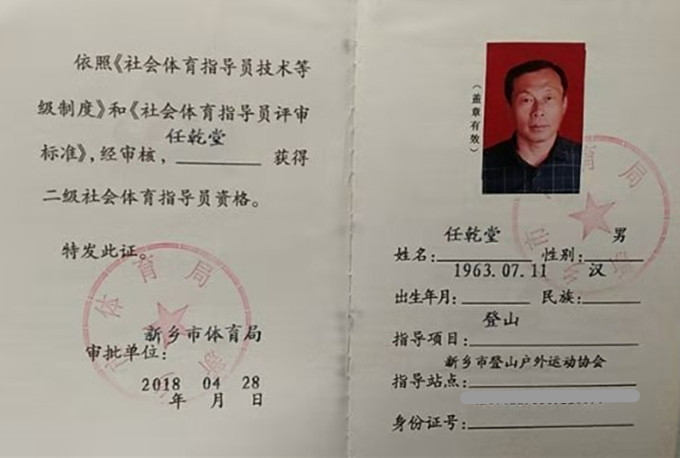 依照《社会体育指导员技术等
级制度》和《社会体育指导员评审
任乾堂
标准》，经审核，获得
二级社会体育指导员资格。
特发此证。
新乡市体育局
审批单位：
2018 04 28
年 月 日
（盖章有效）
任乾堂 男
姓名： 性别：
1963.07.11 汉
出生年月： 民族：
登山
指导项目：
新乡市登山户外运动协会
指导站点：
身份证号：